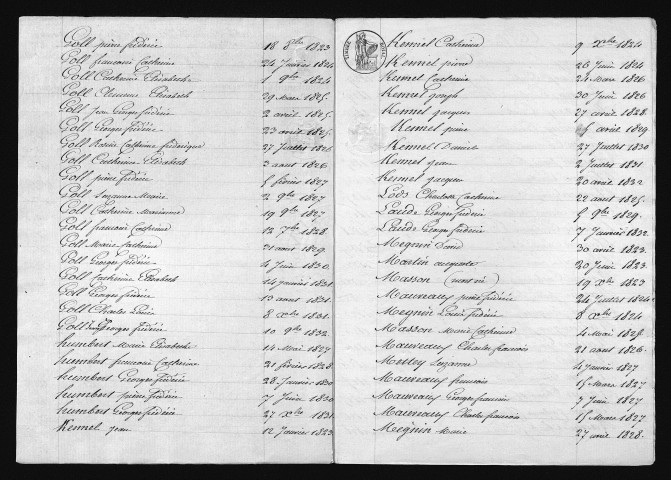 Goll pierre frédéric 18 8bre 1823
Goll francoise Catherine 24 Janvier 1824
Goll Catherine Elisabeth 1 9bre 1824
Goll Clemence Elisabeth 29 Mars 1825.
Goll Jean Georges frédéric 2 avril 1825.
Goll Georges frédéric 23 avril 1825.
Goll Catherine frédérique 27 Juillet 1826
Goll Catherine Elisabeth 3 aout 1826
Goll pierre frédéric 5 février 1827
Goll Suzanne Marie 2 9bre 1827
Goll Catherine Marianne 19 9bre 1827
Goll francoise Catherine 12 7bre 1828.
Goll Marie Catherine 21 aout 1829.
Goll Georges frédéric 4 Juin 1830.
Goll Catherine Elisabeth 14 janvier 1831
Goll Georges frédéric 13 aout 1831.
Goll Charles Louis 8 xbre 1831.
Goll Georges frédéric 10 9bre 1832.
humbert Marie Elisabeth 14 Mai 1827
humbert francoise Catherine 21 février 1828.
humbert Georges frédéric 28 Janvier 1830
humbert pierre frédéric 7 Juin 1830
humbert Georges frédéric 27 xbre 1831
Kennel jean 12 Janvier 1823
Kennel Catherine 9 xbre 1824
Kennel pierre 26 Juin 1824
Kennel Catherine 24 Mars 1826
Kennel joseph 30 Juin 1826
Kennel jacques 27 avril 1828.
Kennel pierre 5 avril 1829
Kennel Daniel 27 Juillet 1830
Kennel jean 2 Juillet 1831
Kennel jacques 20 avril 1832
Lods Charlotte Catherine 22 aout 1825.
Laude Georges frédéric 5 9bre 1829.
Laude Georges frédéric 7 Janvier 1832.
Megnin David 30 avril 1823.
Martin auguste 20 Juin 1823.
Masson (mort né) 19 xbre 1823
Mauveaux pierre frédéric 24 Juillet 1824
Megnin Louis frédéric 8 xbre 1824
Masson Marie Catherine 4 Mai 1825.
Mauveaux Charles francois 21 aout 1826.
Mettey Suzanne 4 Janvier 1827
Mauveaux francois 15 Mars 1827
Mauveaux Georges francois 7 Juin 1827
Mauveaux Charles francois 15 Mars 1827
Megnin Marie 27 avril 1828.